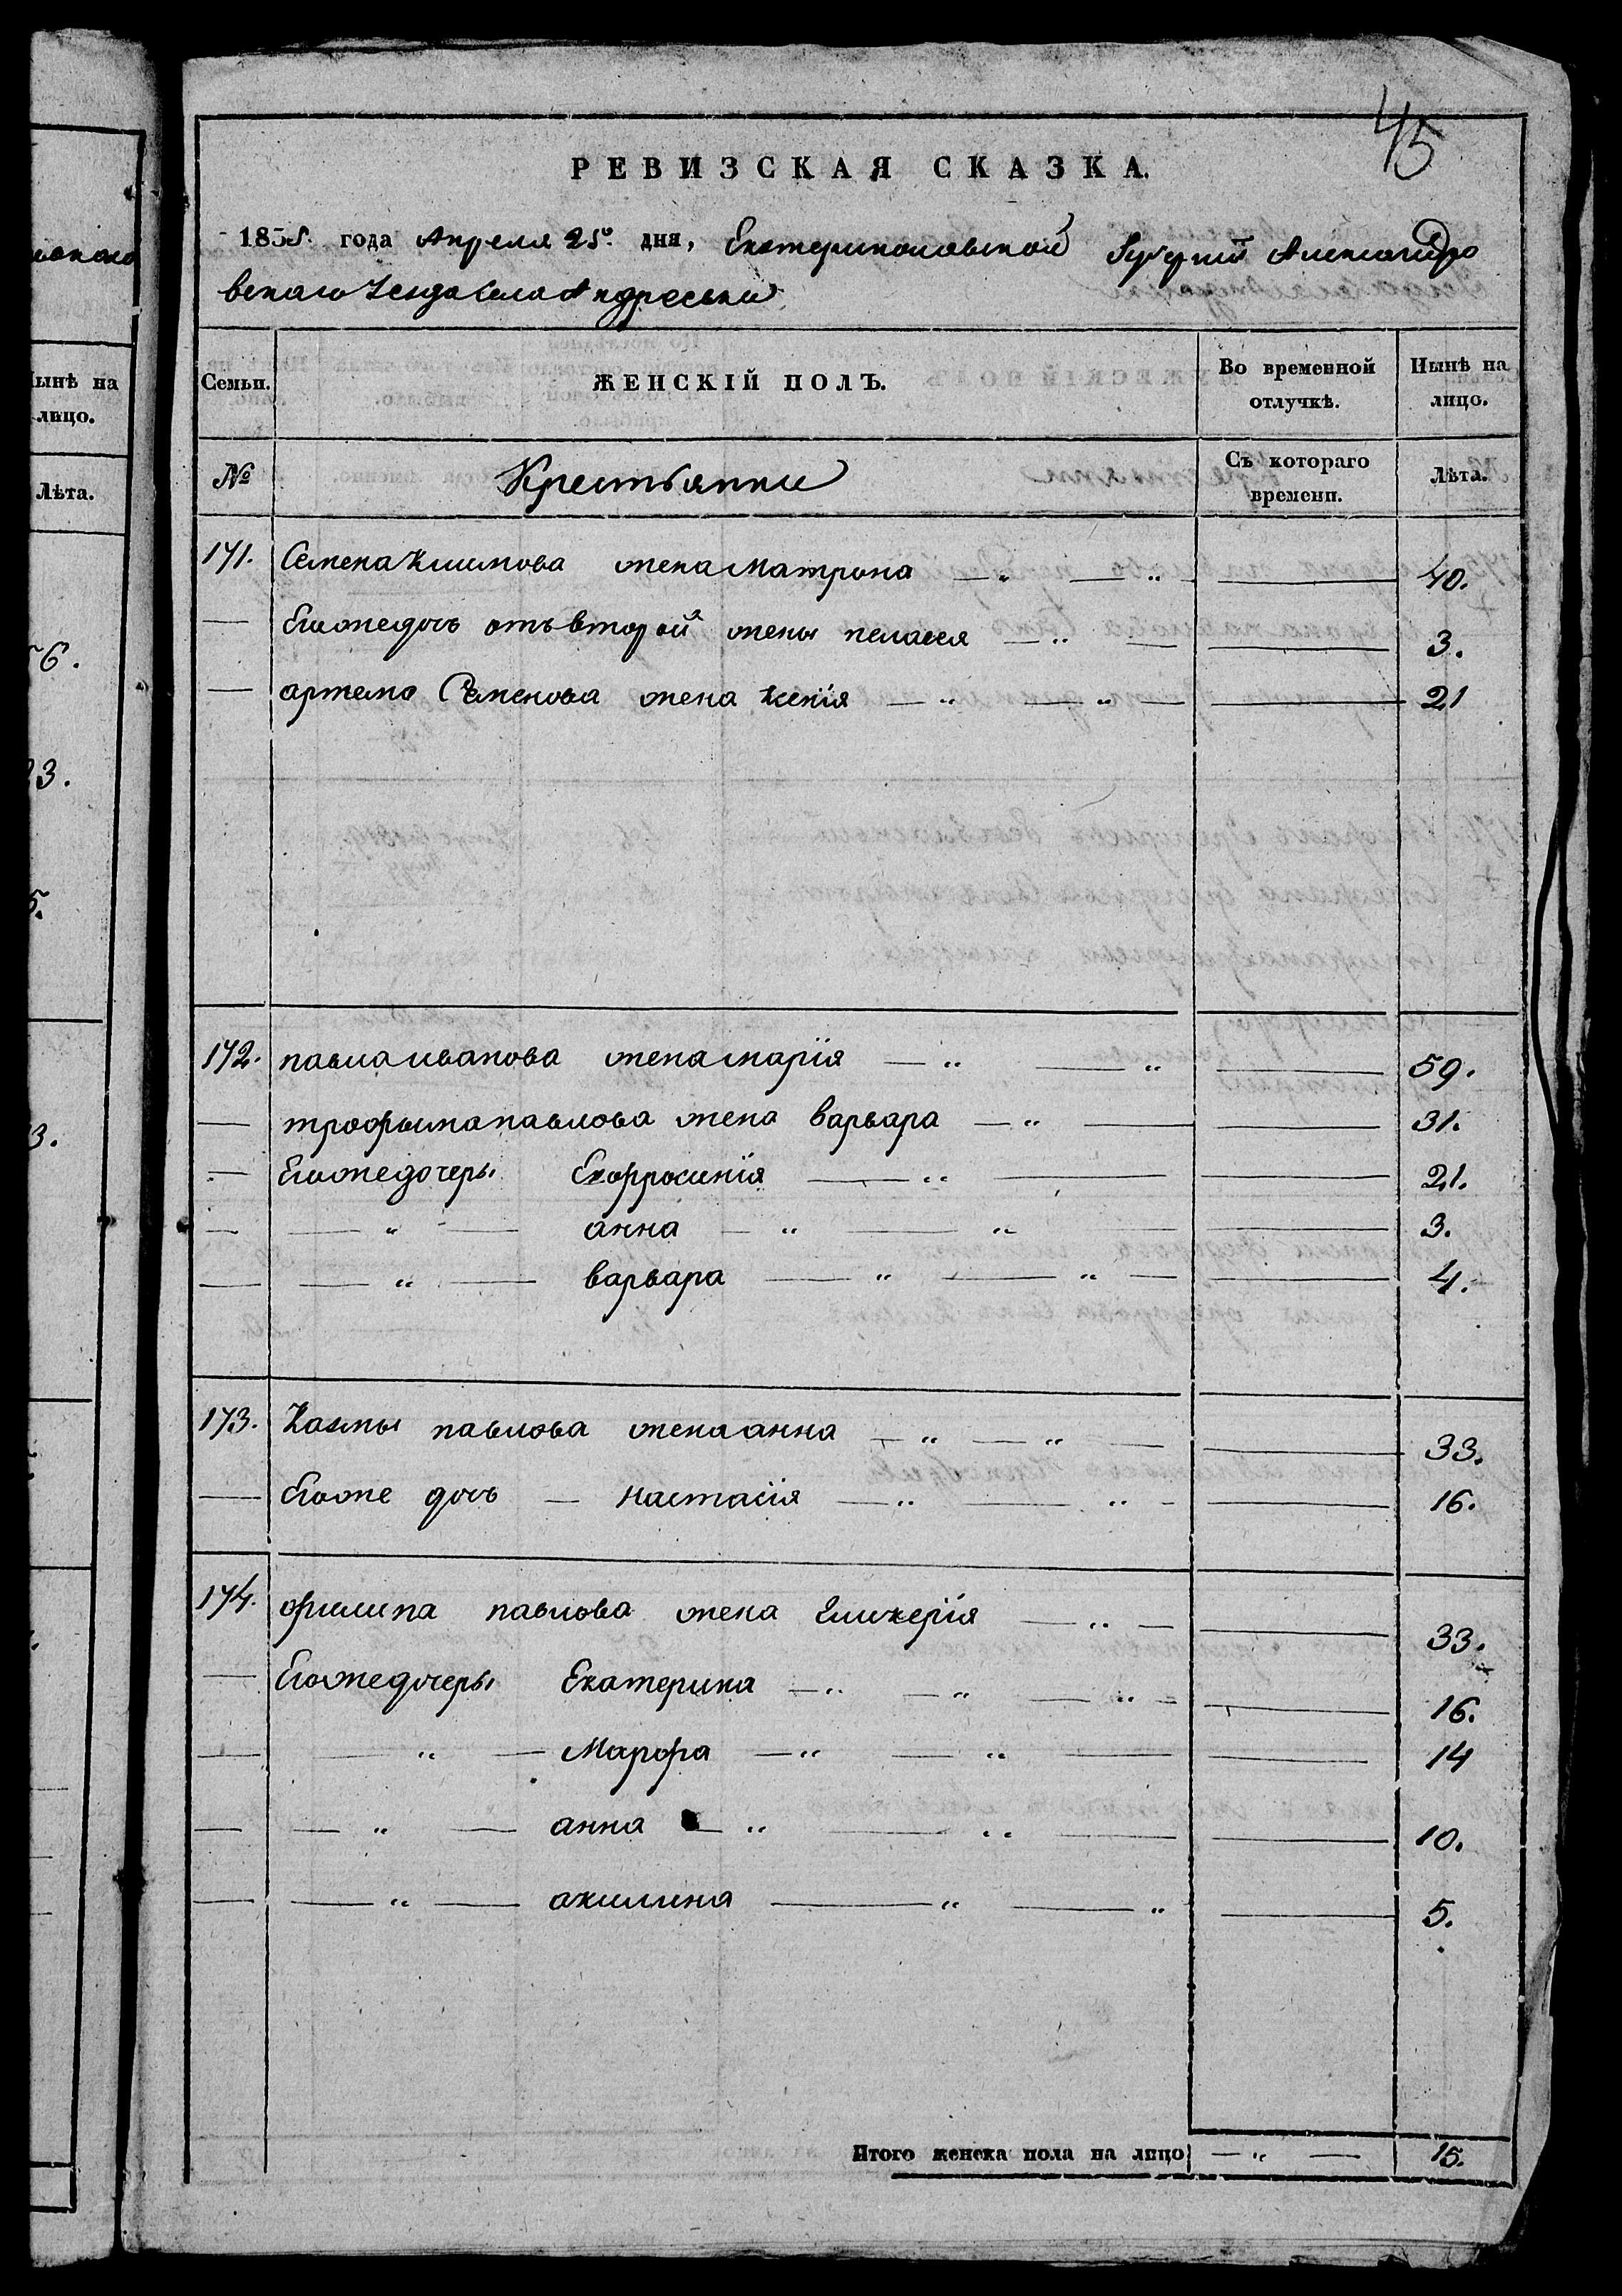 45
РЕВИЗСКАЯ СКАЗКА.
1858. года Апреля 25го. дня, Екатеринославской Губернии Александро
вскаго Уезда Села Андреевки
Семьи. ЖЕНСКІЙ ПОЛЪ. Во временной отлучкѣ. Нынѣ на лицо.
№ Крестьянки Съ котораго времени. Лѣта.
171. Семена Климова жена Матрона — „ — „ — 40.
— Егоже дочь отъ второй жены пелагея — „ — 3.
— артема Семенова жена Ксенія — „ — „ — 21
172. павла иванова жена марія — „ — „ — 59.
— трофыма павлова жена варвара — „ — 31.
— Егоже дочеры Ефросинія — „ — 21.
— — „ — анна — „ — „ — 3.
— — „ — варвара — „ — „ — 4.
173. Казмы павлова жена анна — „ — „ — 33.
— Егоже дочь — настасія — „ — „ — 16.
174. филипа павлова жена Гликерія — „ — 33.
— Егоже дочеры Екатерина — „ — „ — „ — 16.
— — „ — Марфа — „ — „ — 14
— — „ — анна — „ — „ — 10.
— — „ — акилина — „ — „ — 5.
Итого женска пола на лицо — „ — 15.
нынѣ на
лицо.
Лѣта.